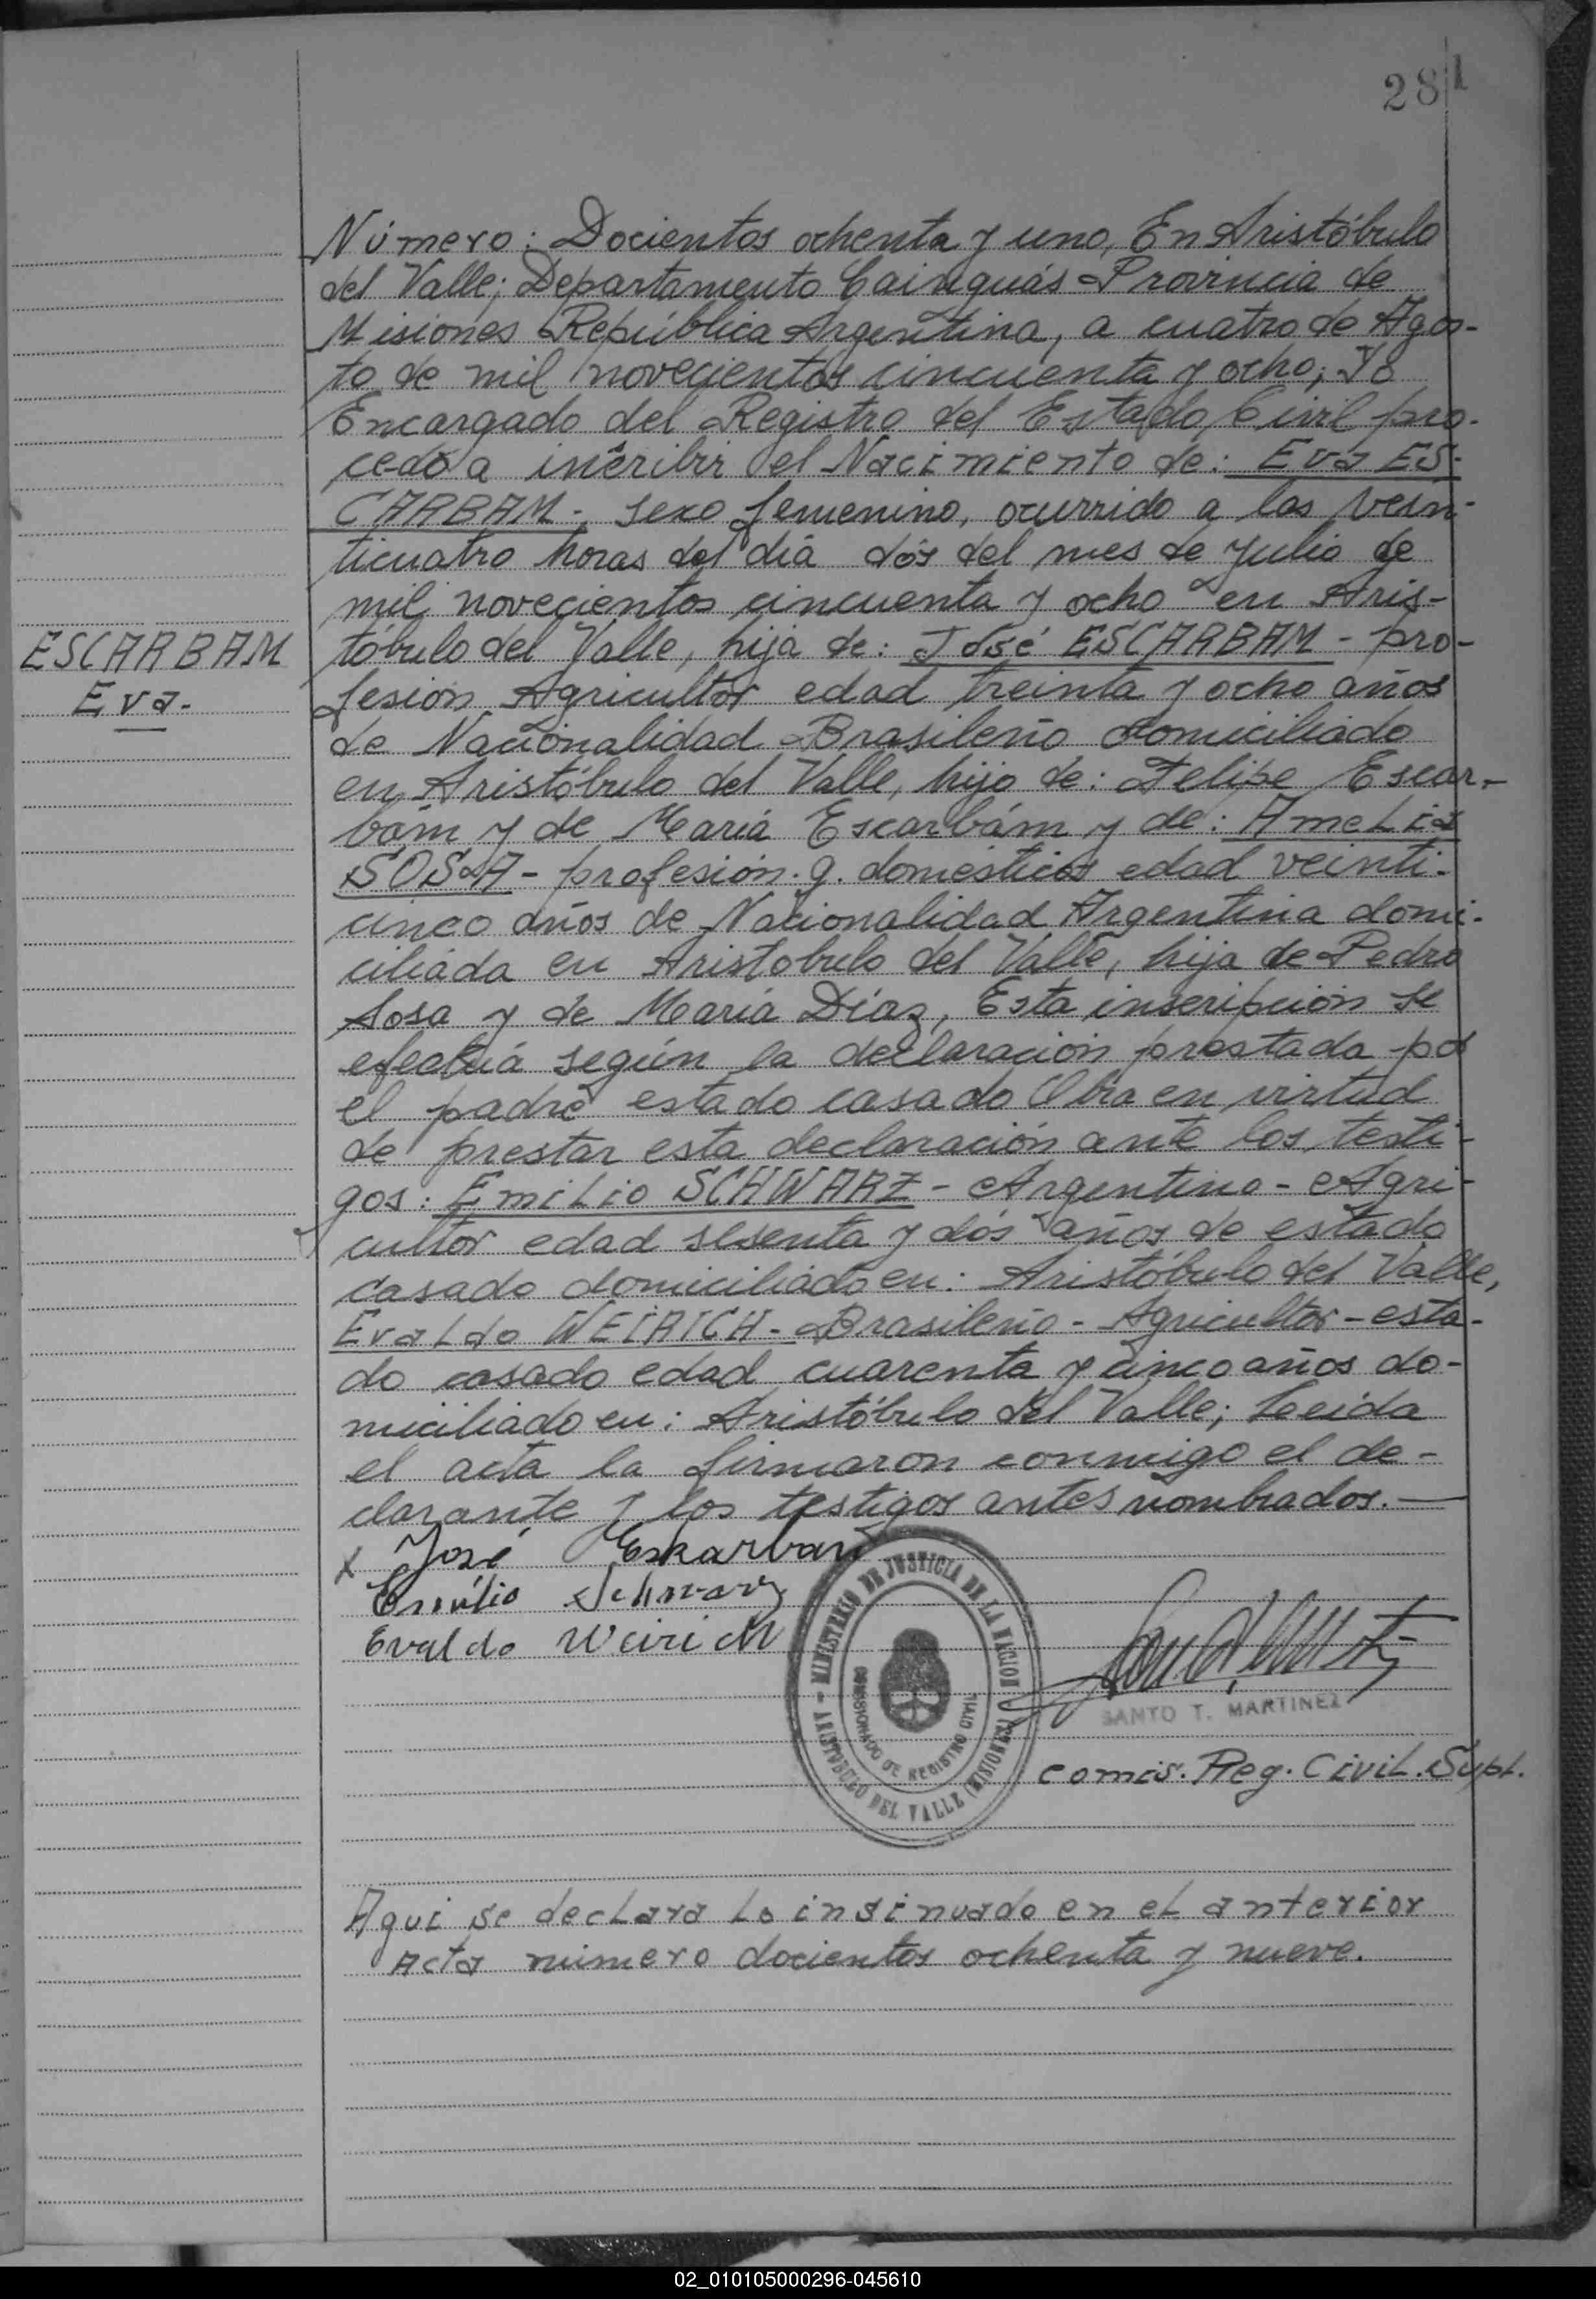 281
Número: Docientos ochenta y uno, En Aristóbulo
del Valle; Departamento Cainguás Provincia de
Misiones República Argentina, a cuatro de Agos-
to de mil novecientos cincuenta y ocho; Yo
Encargado del Registro del Estado Civil pro-
cedo a inscribir el Nacimiento de: Eva ES-
CARBAM-, sexo femenino, ocurrido a las vein-
ticuatro horas del día dós del mes de Julio de
mil novecientos cincuenta y ocho en Aris-
ESCARBAM
Eva.
tóbulo del Valle, hija de: José ESCARBAM - pro-
fesión Agricultor edad treinta y ocho años
de Nacionalidad Brasileño domiciliado
en Aristóbulo del Valle, hijo de: Felipe Escar-
bám y de María Escarbám y de: AmeLia
SOSA - profesión. q. domésticos edad veinti-
cinco años de Nacionalidad Argentina domi-
ciliada en Aristobulo del Valle, hija de Pedro
Sosa y de María Díaz, Esta inscripción se
efectuá según la declaración prestada por
el padre estado casado Obra en virtud
de prestar esta declaración ante los testi-
gos: EmiLio SCHWARZ - Argentino - Agri-
cultor edad sesenta y dós años de estado
casado domiciliado en: Aristóbulo del Valle,
EvaLdo WEIRICH - Brasileño - Agricultor - esta-
do casado edad cuarenta y cinco años do-
miciliado en: Aristóbulo del Valle; Leída
el acta la firmaron conmigo el de-
clarante y los testigos antes nombrados.—
x José Eskarban
Emílio Schwarz
Evaldo Weirich
MINISTERIO DE JUSTICIA DE LA NACION
COMISIONADO DE REGISTRO CIVIL
ARISTOBULO DEL VALLE (MISIONES)
SANTO T. MARTINEZ
comis. Reg. CiviL. SupL.
Aqui se decLara Lo insinuado en eL anterior
Acta número docientos ochenta y nueve.
02_010105000296-045610